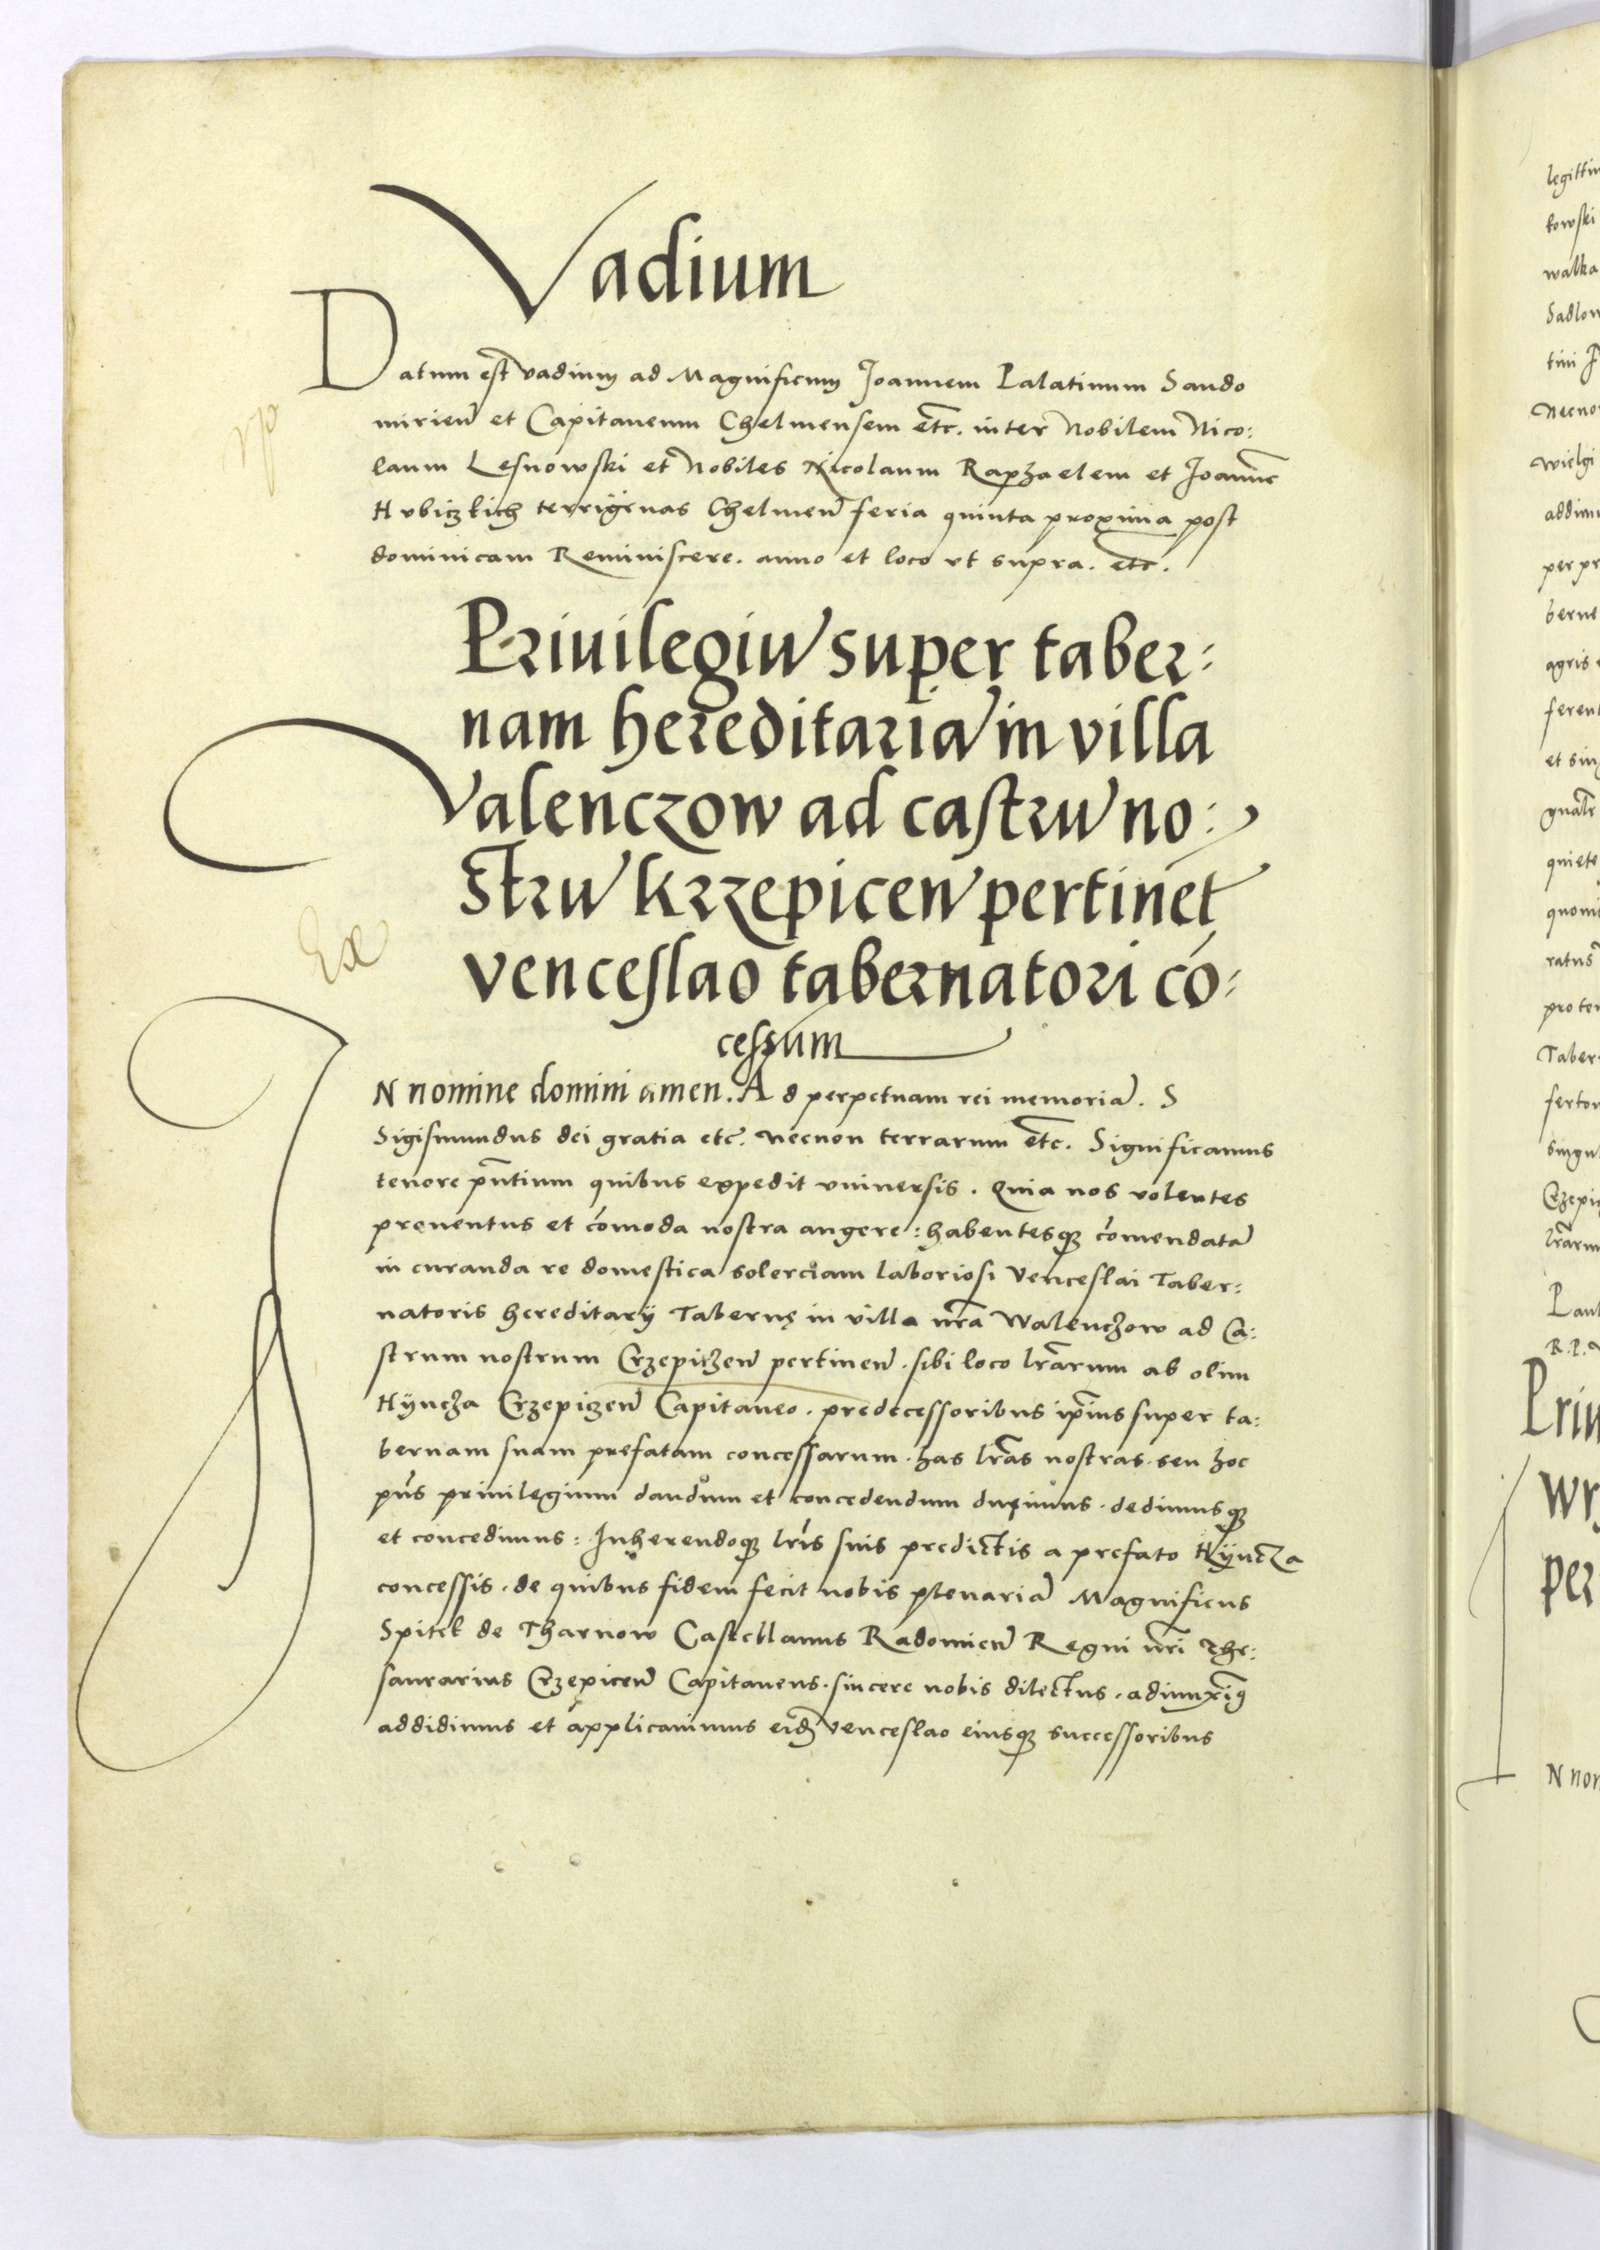 Vadium
Datum est vadium ad Magnificum Joannem Palatinum Sando
mirien̄ et Capitaneum Chelmensem etc. inter Nobilem Nico:
laum Lesnowski et Nobiles Nicolaum Raphaelem et Joannē
Hubiczkich terrigenas Chelmen̄ feria quinta proxima post
dominicam Reminiscere. anno et loco vt supra. etc.
Priuilegiū super taber:
nam hereditariā in villa
Valenczow ad castrū no:
strū krzepicen̄ pertinēt
venceslao tabernatori cō:
cessum
Ex
IN nomine domini amen. Ad perpetuam rei memoriā. S
Sigismundus dei gratia etc. necnon terrarum etc. Significamus
tenore pn̄tium quibus expedit vniuersis. Quia nos volentes
prouentus et cōmoda nostra augere: habentesqꝫ cōmendatā
in curanda re domestica solerciam laboriosi Venceslai Taber:
natoris hereditarij Tabernę in villa nr̄a Walenczow ad Ca:
strum nostrum Crzepiczen̄ pertinen̄. sibi loco lr̄arum ab olim
Hyncza Crzepiczen̄ Capitaneo. predecessoribus ip̄ius super ta:
bernam suam prefatam concessarum. has lr̄as nostras. seu hoc
pn̄s priuilegium dandum et concedendum duximus. dedimusqꝫ
et concedimus: Inherendoqꝫ lr̄is suis predictis a prefato Hyncza
concessis. de quibus fidem fecit nobis plenariā Magnificus
Spitek de Tharnow Castellanus Radomien̄ Regni nr̄i The:
saurarius Crzepicen̄ Capitaneus. sincere nobis dilectus. adiunximꝰ
addidimus et applicauimus eidē venceslao eiusqꝫ successoribus